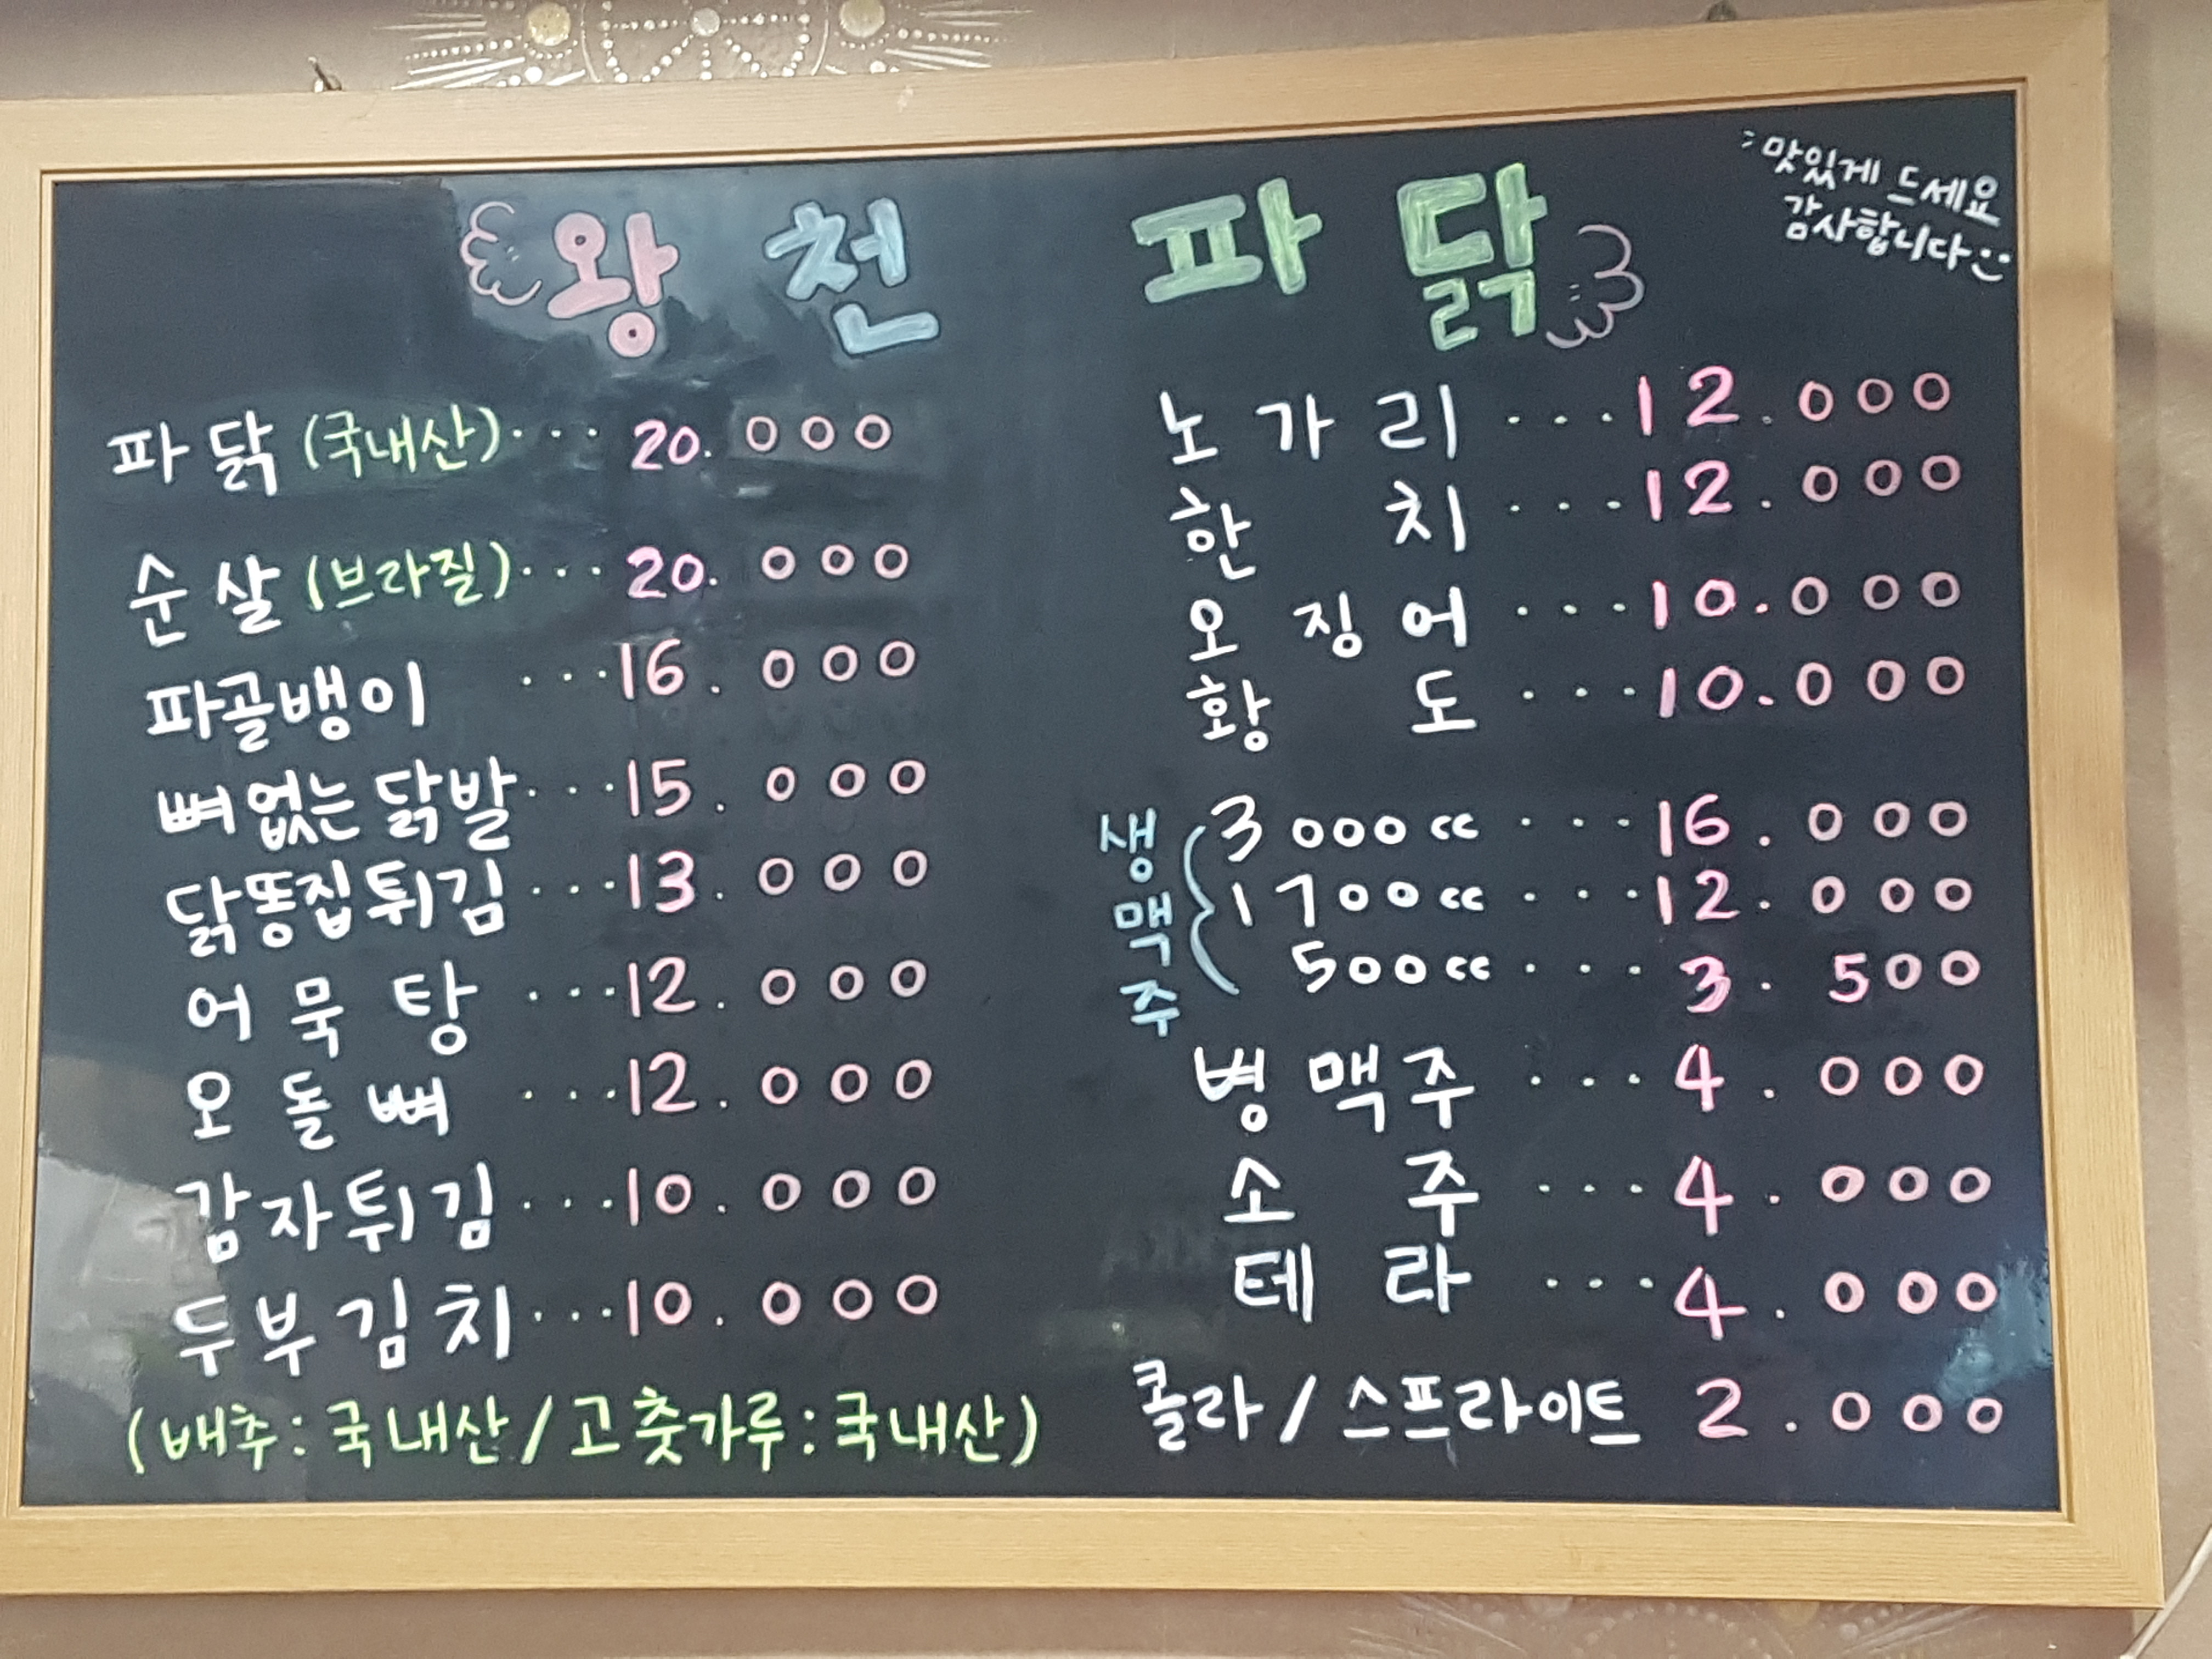 왕천파닭
맛있게 드세요
감사합니다
파닭 (국내산)... 20.000
순살 (브라질)... 20.000
파골뱅이 ...16.000
뼈없는닭발...15.000
닭똥집튀김...13.000
어묵탕 ...12.000
오돌뼈 ...12.000
감자튀김...10.000
두부김치...10.000
(배추:국내산/고춧가루:국내산)
노가리...12.000
한치...12.000
오징어...10.000
황도...10.000
생맥주
3000cc...16.000
1700cc...12.000
500cc...3.500
병맥주...4.000
소주...4.000
테라...4.000
콜라/스프라이트 2.000